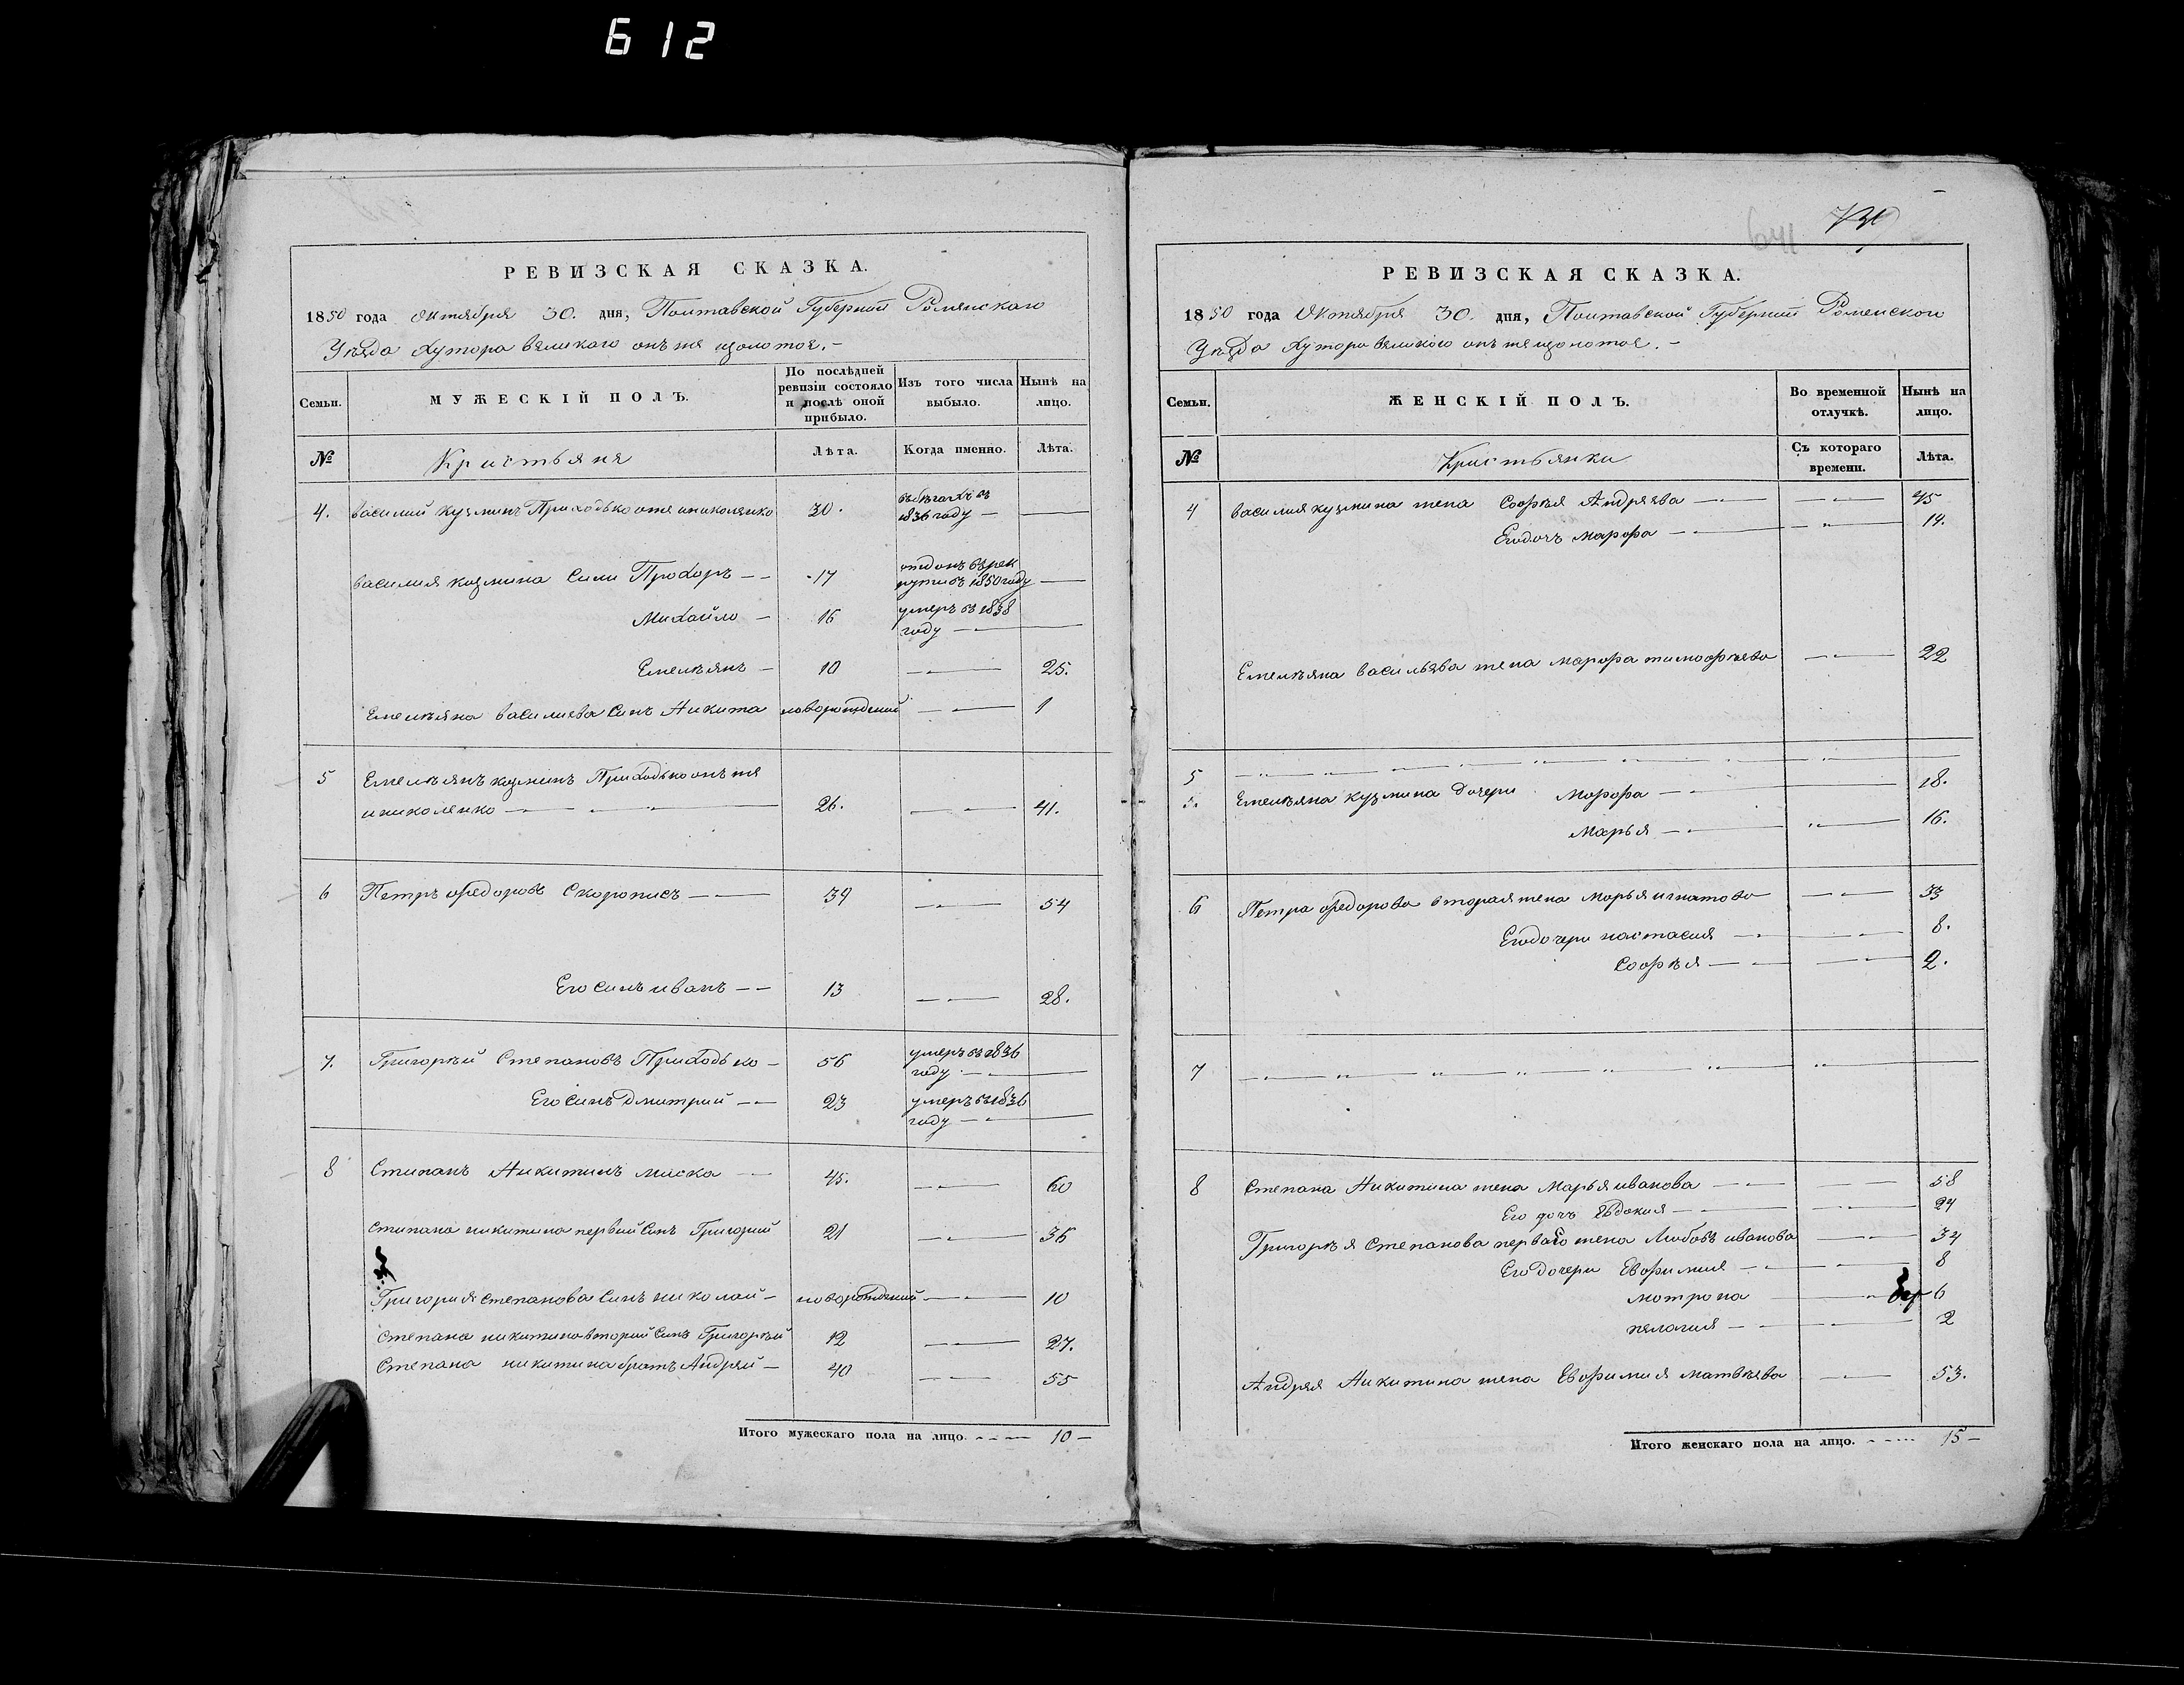 612
РЕВИЗСКАЯ СКАЗКА.
1850 года Октября 30. дня, Полтавской Губернии Роменскаго
Уезда Хутора великаго онъ же
Семьи. МУЖЕСКІЙ ПОЛЪ. По послѣдней ревизіи состояло и послѣ оной прибыло. Изъ того числа выбыло. Нынѣ на лицо.
№ Кристьяня Лѣта. Когда именно. Лѣта.
4. василий кузминъ Приходько онже иниколенко 30. въбѣгахъ въ 1836 году —
василия козмина Сини Прохоръ — 17 отданъ върек рути въ 1850 году —
Михайло — 16 умеръ въ 1838 году —
Емельянъ — 10 — 25.
Емельяна василиева Синъ Никита новорожденій — 1
5 Емельянъ козминъ Приходько онъ же
иниколенко — 26. — 41.
6 Петръ Федоровъ Скорописъ — 39 — 54
Его Синъ иванъ — 13 — 28.
7. Григорѣй Степановъ Приходько — 56 умеръ въ 1836 году —
Его Синъ Дмитрий — 23 умеръ въ 1836 году —
8 Степанъ Никитинъ миска — 45. — 60
Степана никитина первий Синъ Григорий 21 — 36
Григория Степанова Синъ николай — новорожденій — 10
Степана никитина вторий Синъ Григорѣй 12 — 27.
Степана никитина братъ Андрей — 40 — 55
Итого мужескаго пола на лицо. — 10 —
641 730
РЕВИЗСКАЯ СКАЗКА.
1850 года Октября 30. дня, Полтавской Губернии Роменскаго
Уезда Хутора великого онъ же
Семьи. ЖЕНСКІЙ ПОЛЪ. Во временной отлучкѣ. Нынѣ на лицо.
№ Кристьянки Съ котораго времени. Лѣта.
4 василия кузмина жена Софѣя Андреева — 45
Егодочъ марфа — 14.
Емельяна васильева жена марфа тимофѣева — 22
5 —
5. Емельяна кузмина дочери Морфа — 18.
Марья — 16.
6 Петра Федорова вторая жена Марья игнатова — 33
Егодочери настасия — 8.
Софѣя — 2.
7 —
8 Степана Никитина жена Марья иванова — 58
Его дочъ Евдокия — 24
Григорѣя Степанова перваго жена Любовъ иванова — 34
Его дочери Евфимия — 8
мотрона — 6
пелагия — 2
Андрея Никитина жена Евфимия матвѣева — 53.
Итого женскаго пола на лицо. — 15 —